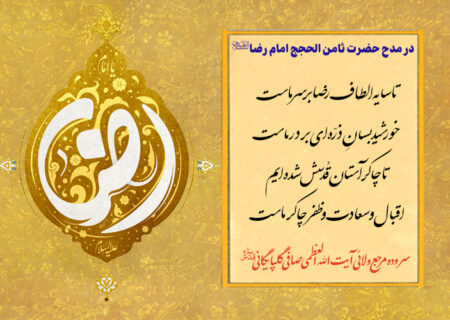 در مدح حضرت ثامن الحجج امام رضا علیه‌السلام
تا سایه الطاف رضا بر سر ماست
خورشید بسان ذره‌ای بر در ماست
تا چاکر آستان قدسش شده ایم
اقبال و سعادت و ظفر چاکر ماست
سروده مرجع ولائی آیت الله العظمی صافی گلپایگانی
یا امام
رضا
علیه السلام